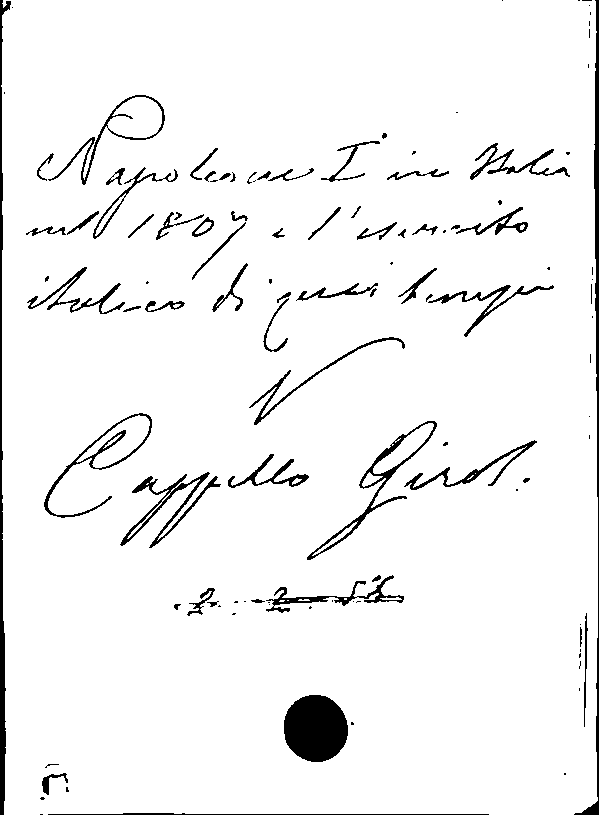 Napoleone I° in Italia
nel 1807 e l'esercito
italico di quei tempi
V
Cappello Girol.
2 2 56